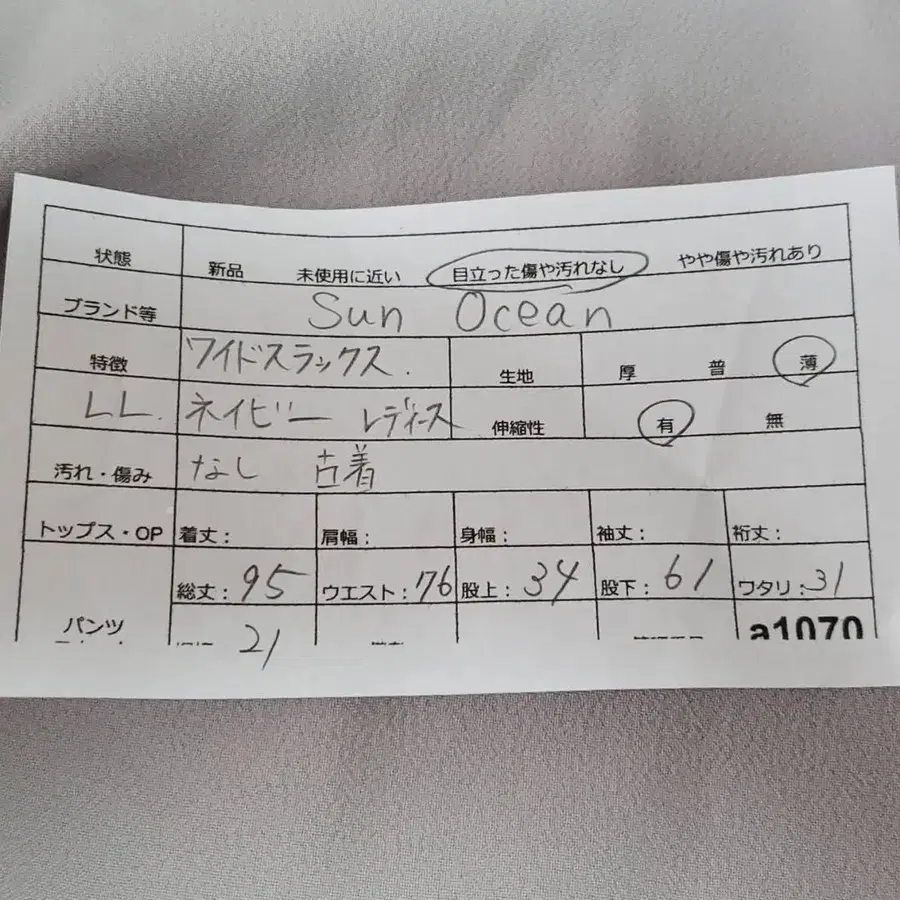 状態 新品 未使用に近い 目立った傷や汚れなし やや傷や汚れあり
ブランド等 Sun Ocean
特徴 ワイドスラックス. 生地 厚 普 薄
LL. ネイビー レディース 伸縮性 有 無
汚れ・傷み なし 古着
トップス・OP 着丈: 肩幅: 身幅: 袖丈: 裄丈:
総丈:95 ウエスト:76 股上:34 股下:61 ワタリ:31
パンツ 21 a1070